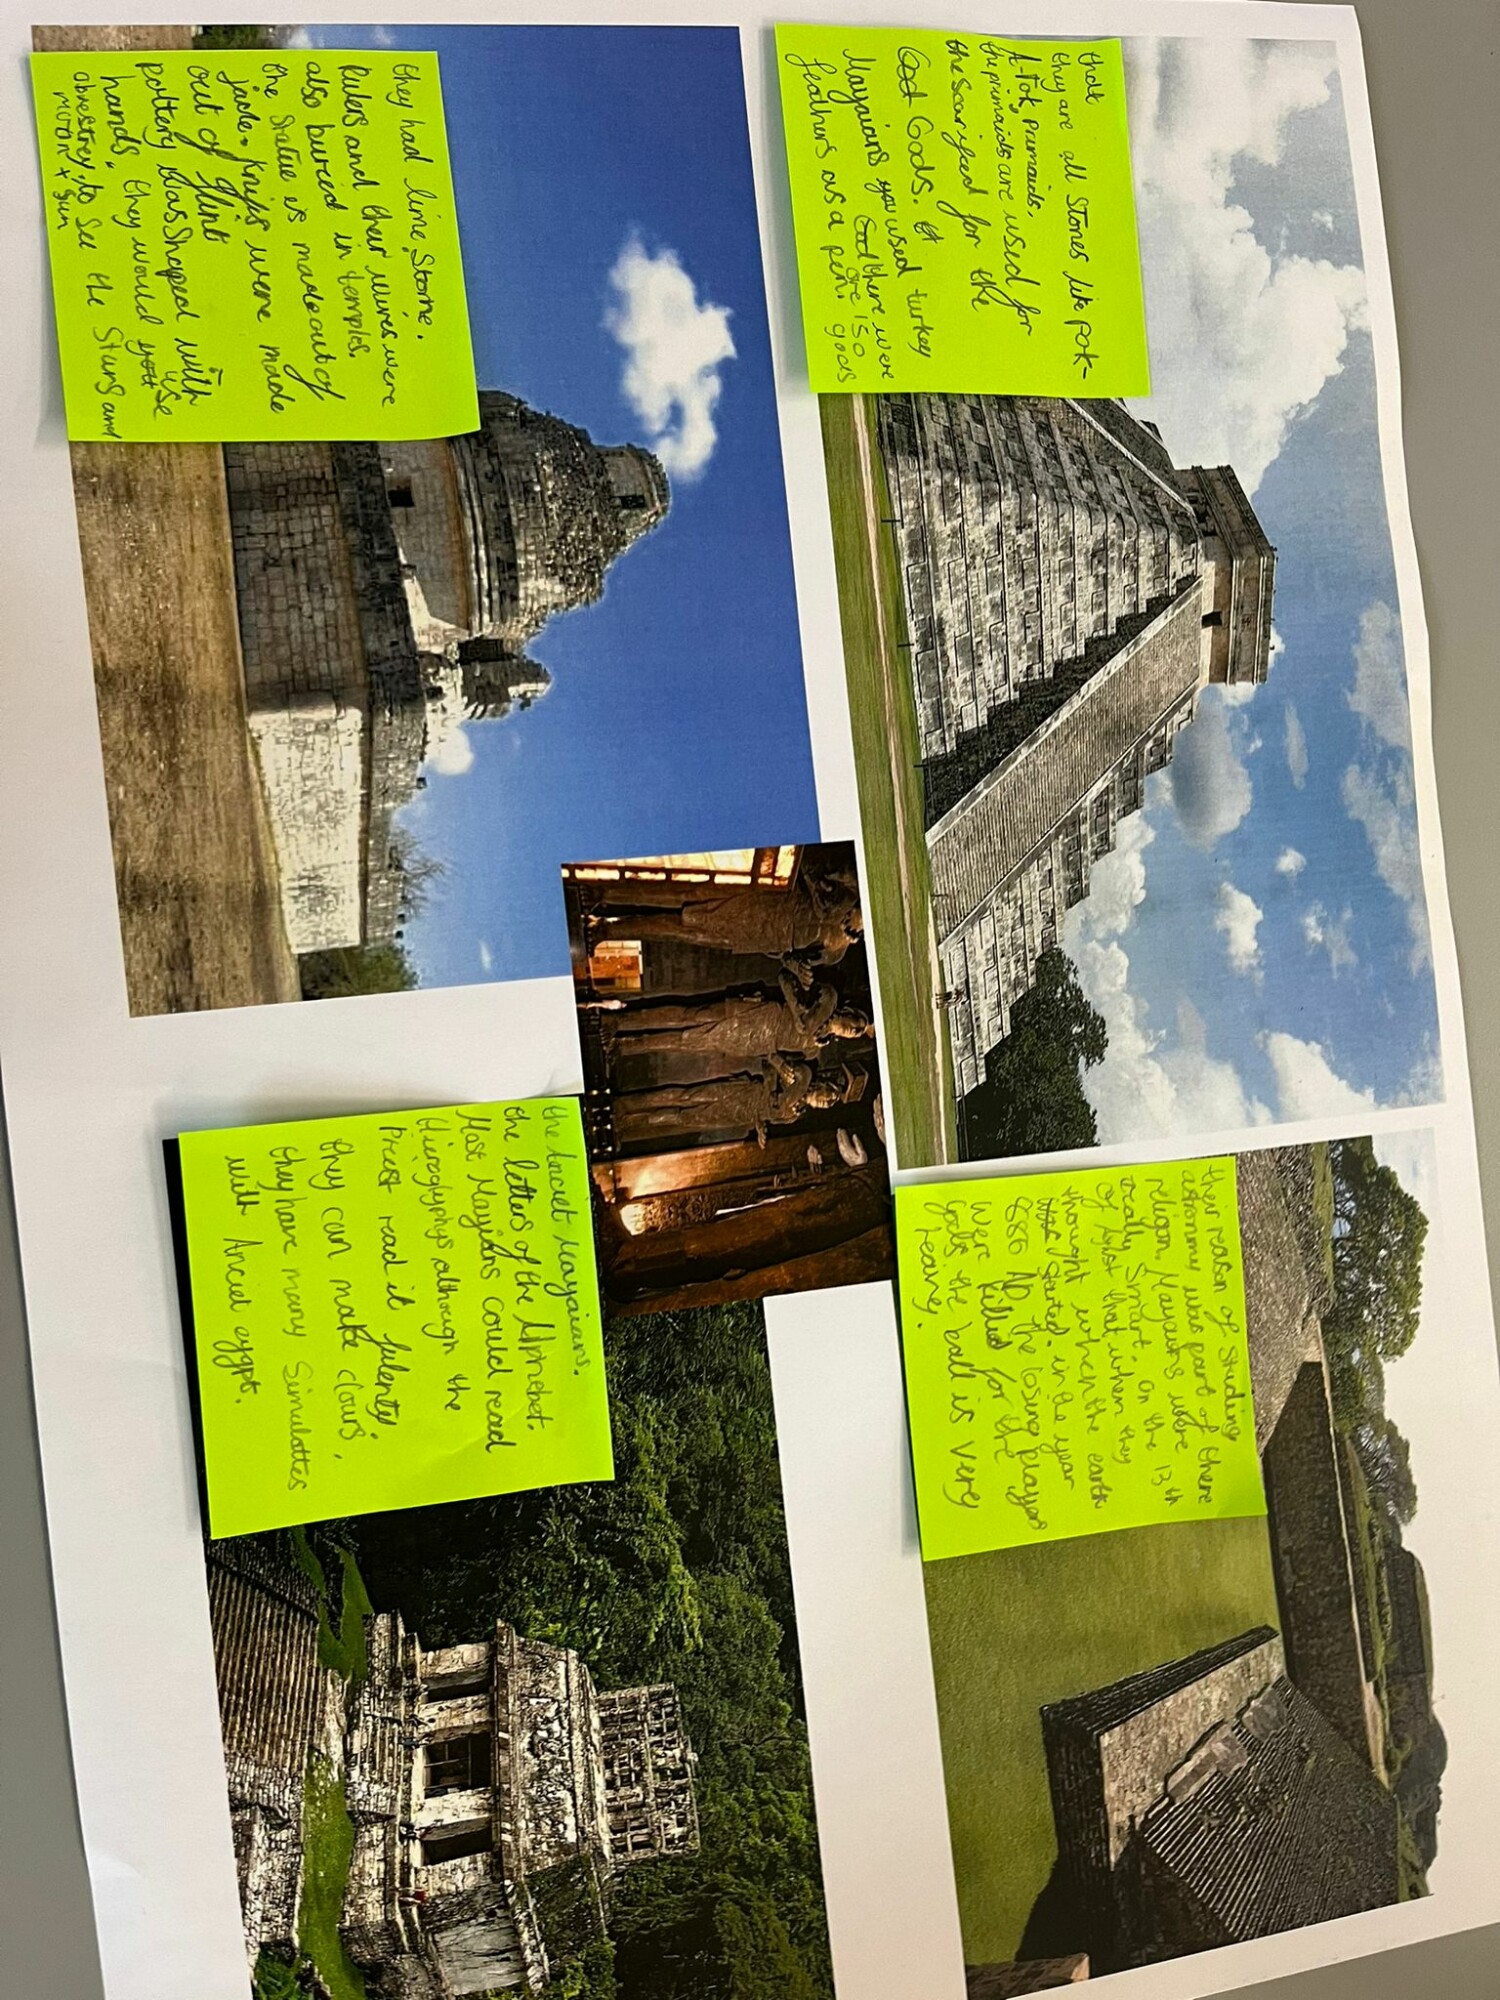 they had lime Stone.
Rulers and their wives were
also buried in temples.
the Statue is made out of
jade. Knifs were made
out of flint
pottery was Shaped with
hands. they would use
obvestrey to See the Stars and
moon + Sun
that
they are all Stones like pok-
A-tok, prumaids.
the primaids are used for
the scarifeed for the
Gods.
Mayaians you used turkey
feathers as a pen.
there were
are 150 gods
the Anciet Mayaians.
the letters of the Alphebet.
Most Mayians could read
Hieroglyphys although the
Priest read it fulently
they can make clours.
they have many Simulattes
with Anciet eygpt.
their reason of Studing
astronmy was part of there
religon, Mayaians were
really Smart. On the 13th
of August that when they
thought when the earth
Started. in the year
886 AD the losing players
were killed for the
gods the ball is very
heavy.